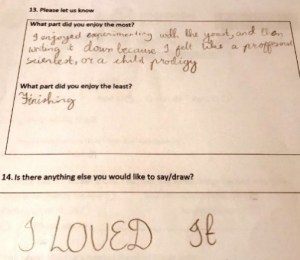 13. Please let us know
What part did you enjoy the most?
I enjoyed experimenting with the yeast, and then
writing it down because I felt like a proffesional
scientest, or a child prodigy
What part did you enjoy the least?
Finishing
14. Is there anything else you would like to say/draw?
I LOVED It